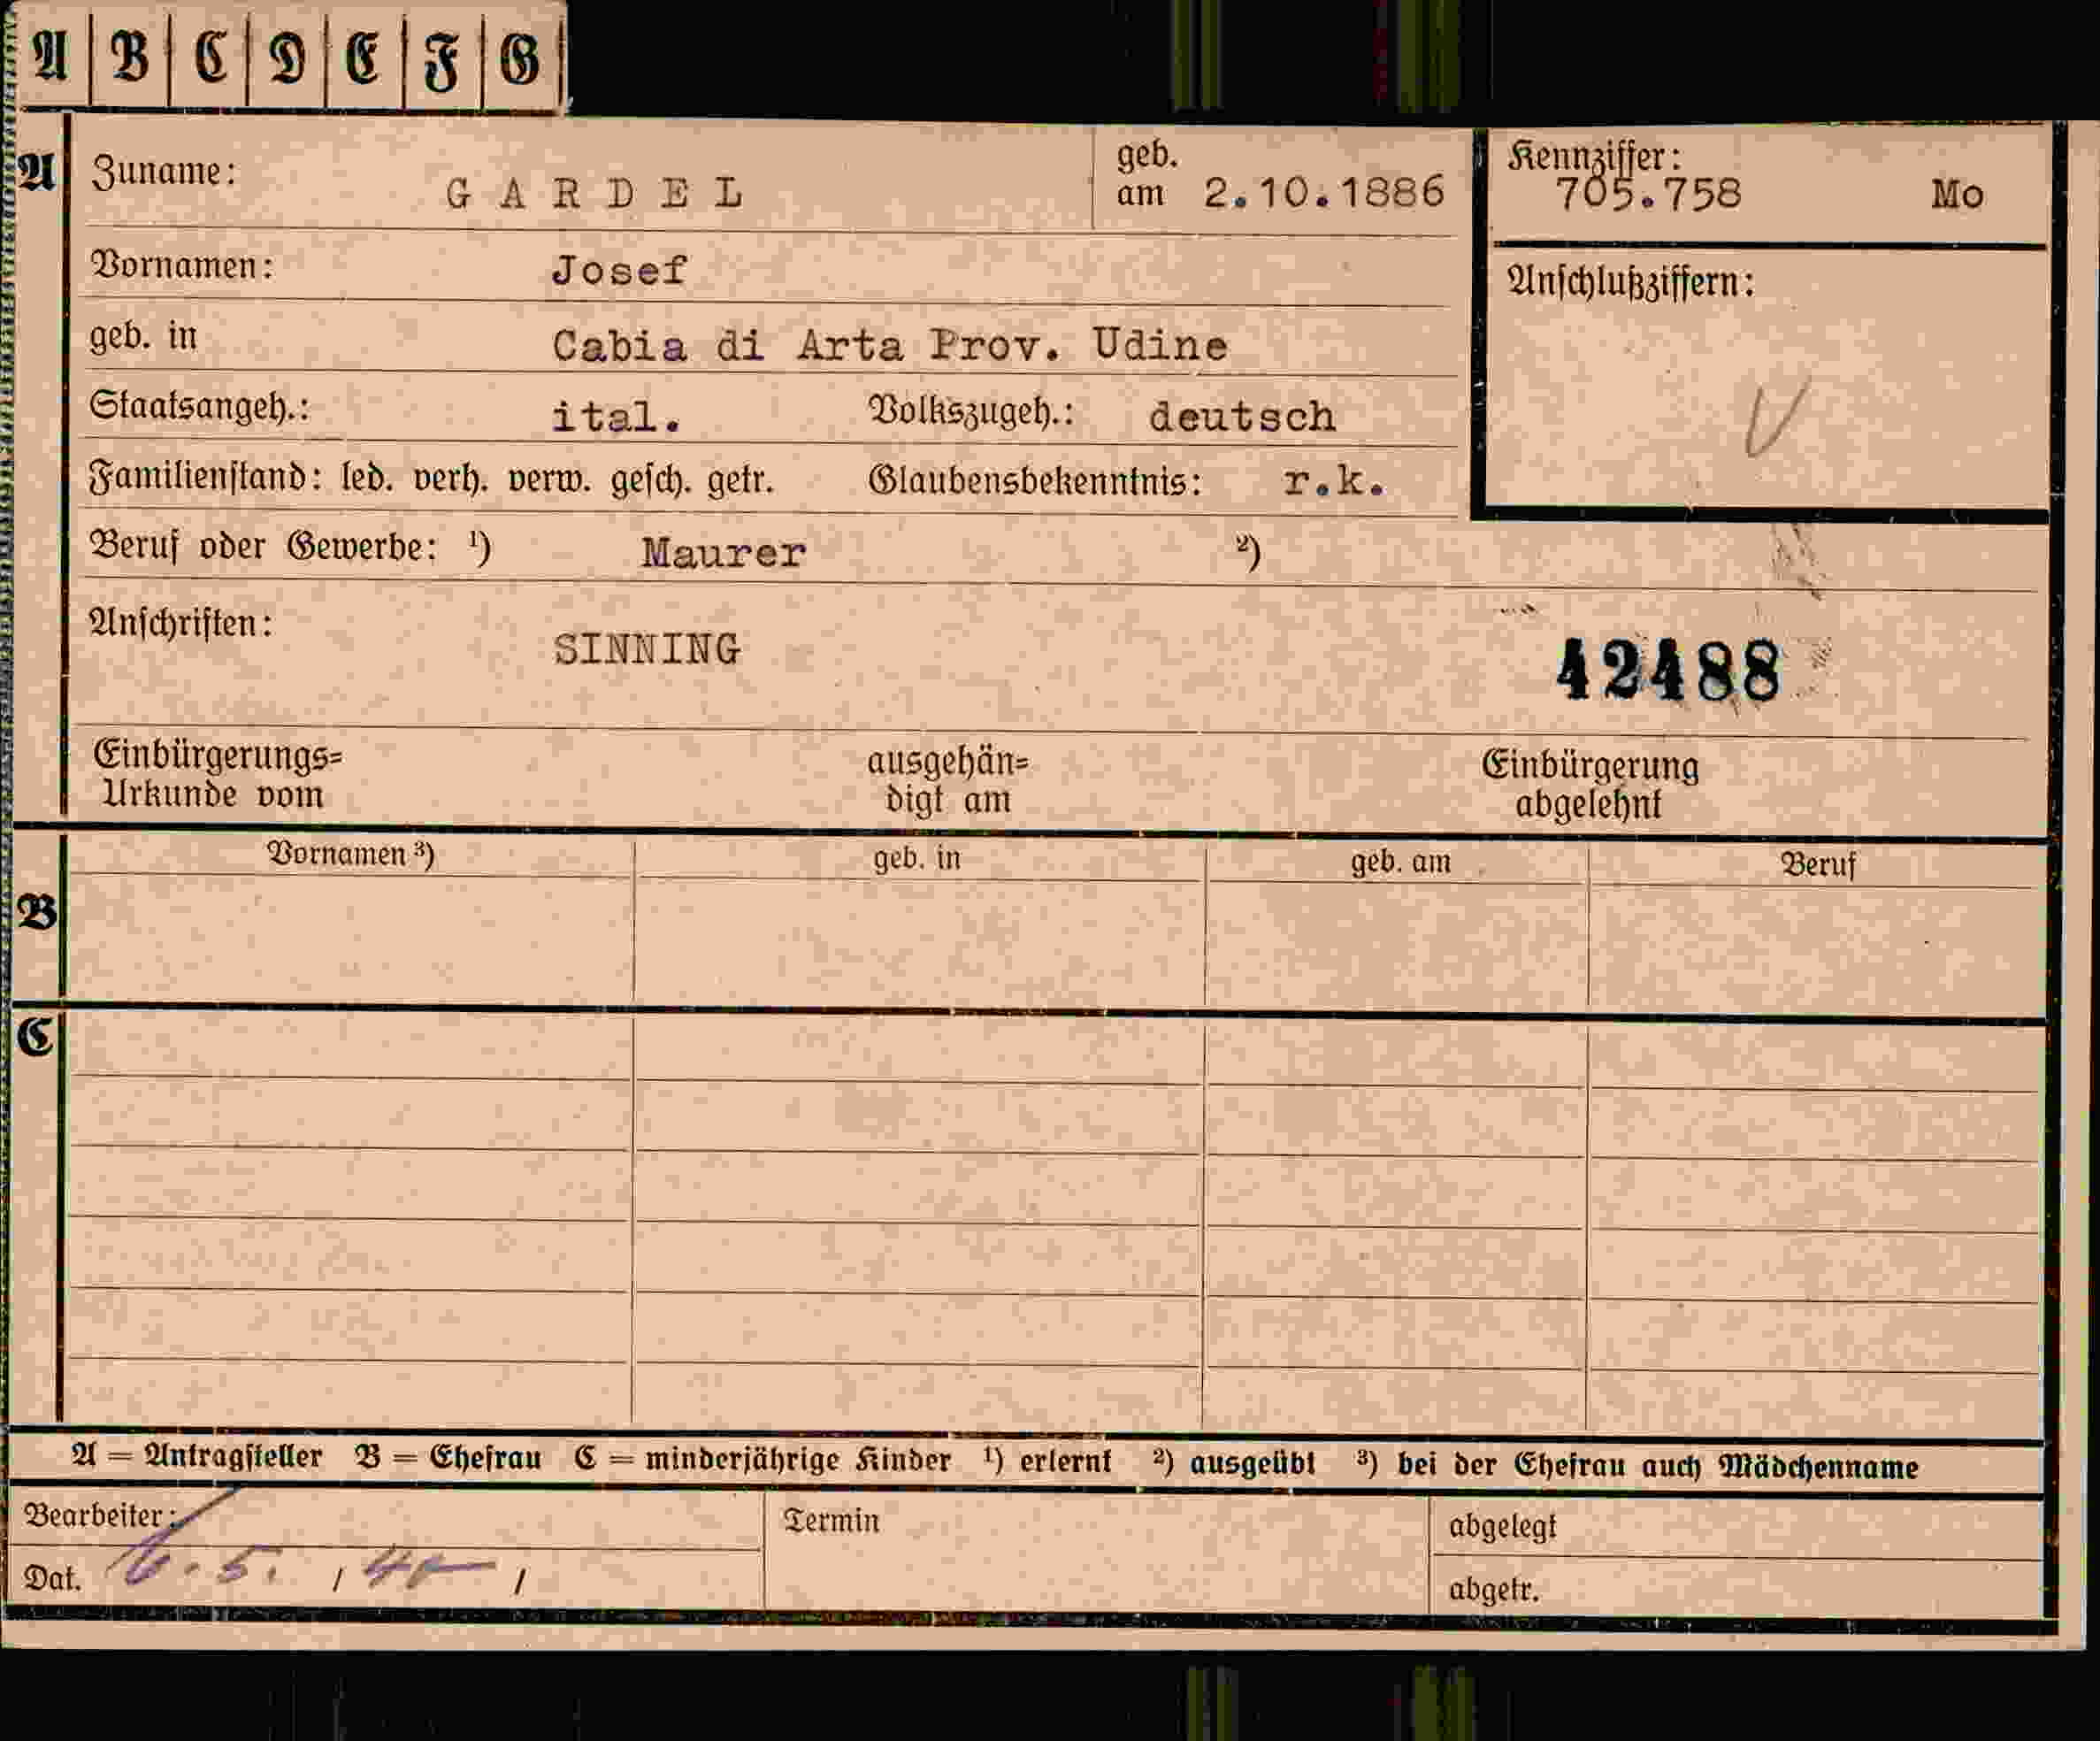 A B C D E F G
A Zuname: GARDEL geb. am 2.10.1886 Kennziffer: 705.758 Mo
Vornamen: Josef Anschlußziffern:
geb. in Cabia di Arta Prov. Udine
Staatsangeh.: ital. Volkszugeh.: deutsch
Familienstand: led. verh. verw. gesch. getr. Glaubensbekenntnis: r.k.
Beruf oder Gewerbe: ¹) Maurer ²)
Anschriften: SINNING 42488
Einbürgerungs= ausgehän= Einbürgerung
Urkunde vom digt am abgelehnt
Vornamen ³) geb. in geb. am Beruf
B
C
A = Antragsteller B = Ehefrau C = minderjährige Kinder ¹) erlernt ²) ausgeübt ³) bei der Ehefrau auch Mädchenname
Bearbeiter: Termin abgelegt
Dat. 6.5. / 40 / abgetr.